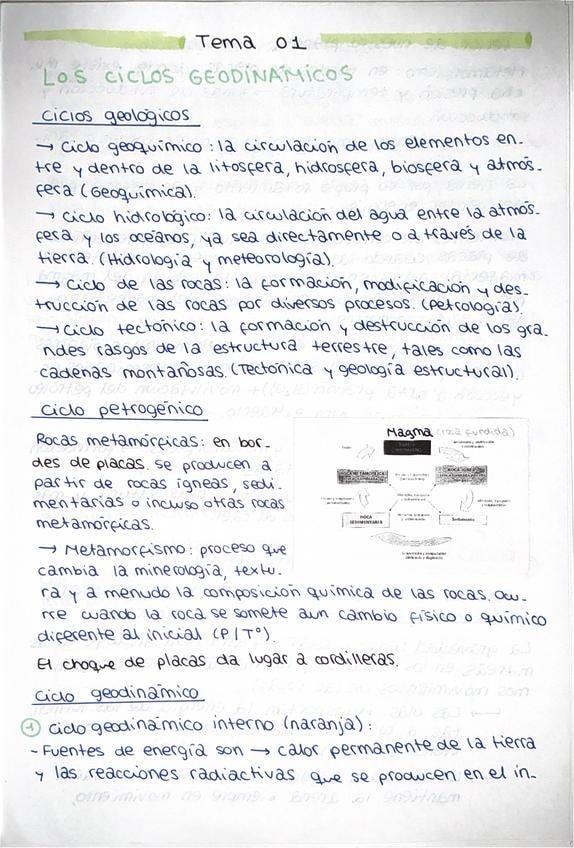 Tema 01
LOS CICLOS GEODINÁMICOS
Ciclos geológicos
→ Ciclo geoquímico: la circulación de los elementos en-
tre y dentro de la litosfera, hidrosfera, biosfera y atmós-
fera (Geoquímica).
→ Ciclo hidrológico: la circulación del agua entre la atmós-
fera y los océanos, ya sea directamente o a través de la
tierra. (Hidrología y meteorología).
→ Ciclo de las rocas: la formación, modificación y des-
trucción de las rocas por diversos procesos. (Petrología).
→ Ciclo tectónico: la formación y destrucción de los gra-
ndes rasgos de la estructura terrestre, tales como las
cadenas montañosas. (Tectónica y geología estructural).
Ciclo petrogénico
Rocas metamórficas: en bor-
des de placas. se producen a
partir de rocas ígneas, sedi-
mentarias o incluso otras rocas
metamórficas.
Magma (roca fundida)
ROCA
SEDIMENTARIA
Sedimento
→ Metamorfismo: proceso que
cambia la minerología, textu-
ra y a menudo la composición química de las rocas. Ocu-
rre cuando la roca se somete aun cambio físico o químico
diferente al inicial (P/Tº).
El choque de placas da lugar a cordilleras.
Ciclo geodinámico
1 Ciclo geodinámico interno (naranja):
- Fuentes de energía son → calor permanente de la tierra
y las reacciones radiactivas que se producen en el in-